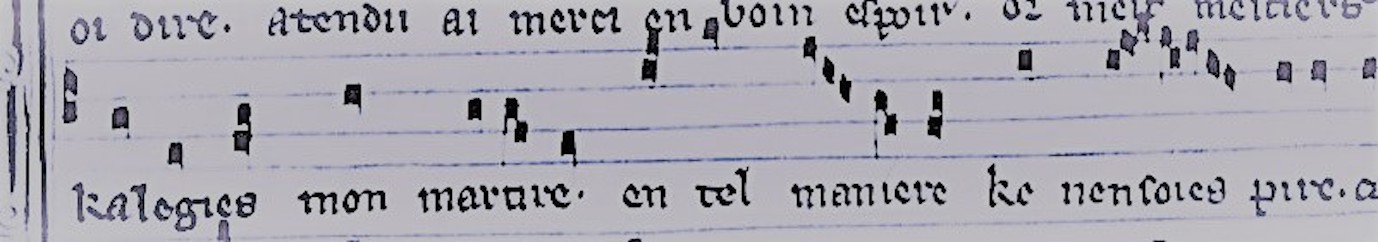 oi dire. atendu ai merci en boin espoir. or meir meitiers
kalegies mon martire. en tel maniere ke nensoies pire. a